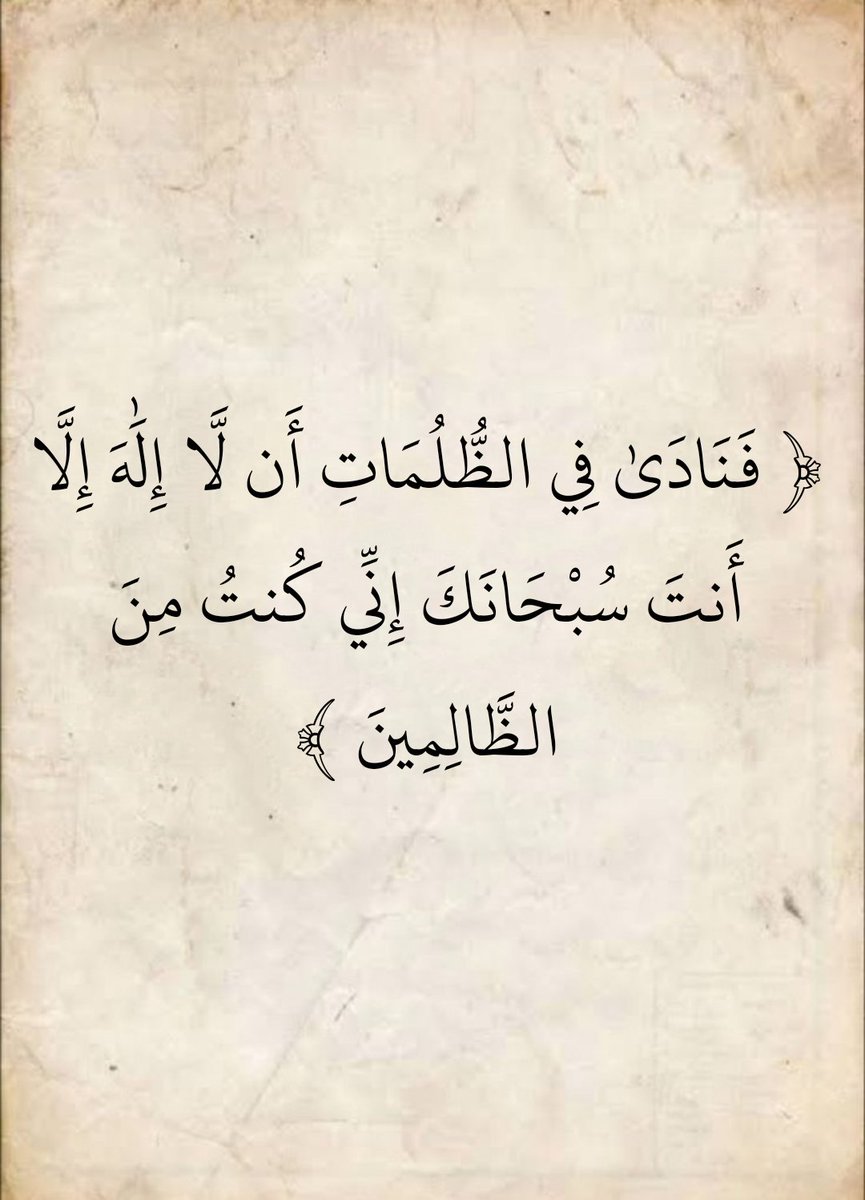 ﴿ فَنَادَىٰ فِي الظُّلُمَاتِ أَن لَّا إِلَٰهَ إِلَّا
أَنتَ سُبْحَانَكَ إِنِّي كُنتُ مِنَ
الظَّالِمِينَ ﴾